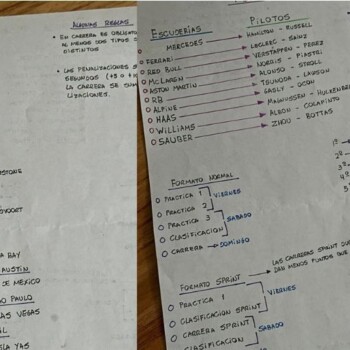 ALGUNAS REGLAS
EN CARRERA ES
AL MENOS DOS TIPOS
DISTINTOS
LAS PENALIZACIONES
SEGUNDOS (+5 o +
LA CARRERA SE
LIZACIONES.
STONE
VOORT
A BAY
AUSTIN
DE MEXICO
O PAULO
AS VEGAS
AL
YAS
ESCUDERÍAS PILOTOS
MERCEDES HAMILTON - RUSSELL
FERRARI LECLERC - SAINZ
RED BULL VERSTAPPEN - PEREZ
McLAREN NORRIS - PIASTRI
ASTON MARTIN ALONSO - STROLL
RB TSUNODA - LAWSON
ALPINE GASLY - OCON
HAAS MAGNUSSEN - HULKENBERG
WILLIAMS ALBON - COLAPINTO
SAUBER ZHOU - BOTTAS
1º
2º
3º
4º
5º
FORMATO NORMAL
PRACTICA 1
PRACTICA 2 VIERNES
PRACTICA 3
CLASIFICACION SABADO
CARRERA DOMINGO
FORMATO SPRINT
LAS CARRERAS SPRINT
DAN MENOS PUNTOS QUE
PRACTICA 1
CLASIFICACION SPRINT VIERNES
CARRERA SPRINT
CLASIFICACION SABADO